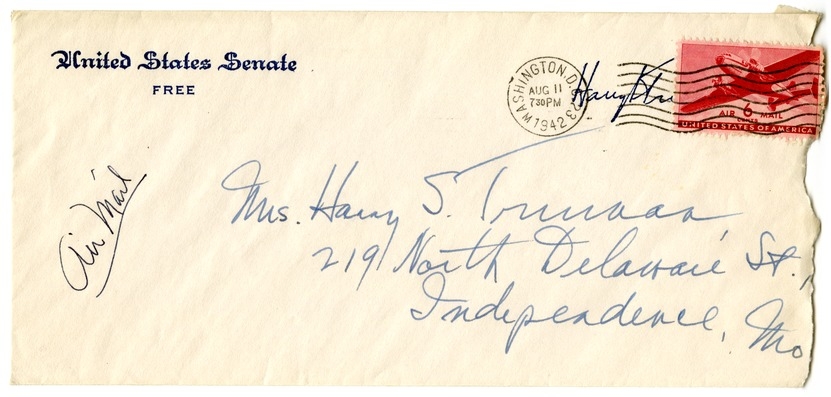 United States Senate
FREE
WASHINGTON, D.C.
AUG 11
7 30 PM
1942
Harry
6
AIR MAIL
CENTS
UNITED STATES OF AMERICA
Air Mail
Mrs. Harry S. Truman,
219 North Delaware St.,
Independence, Mo